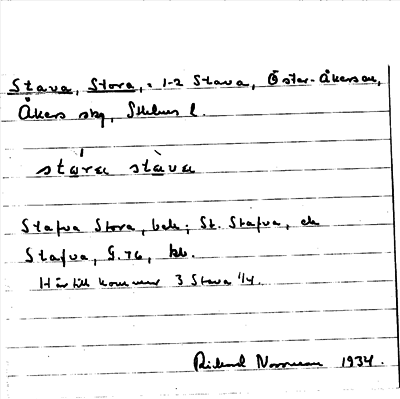 Stava, Stora, = 1-2 Stava, Öster-Åkers sn,
Åkers skg, Sthlms l.
stára stàva
Stafva Stora, bek; St. Stafva, ek
Stafva, G. 76, kb.
Härtill kommer 3 Stava 1/4.
Rickard Norrman 1934.